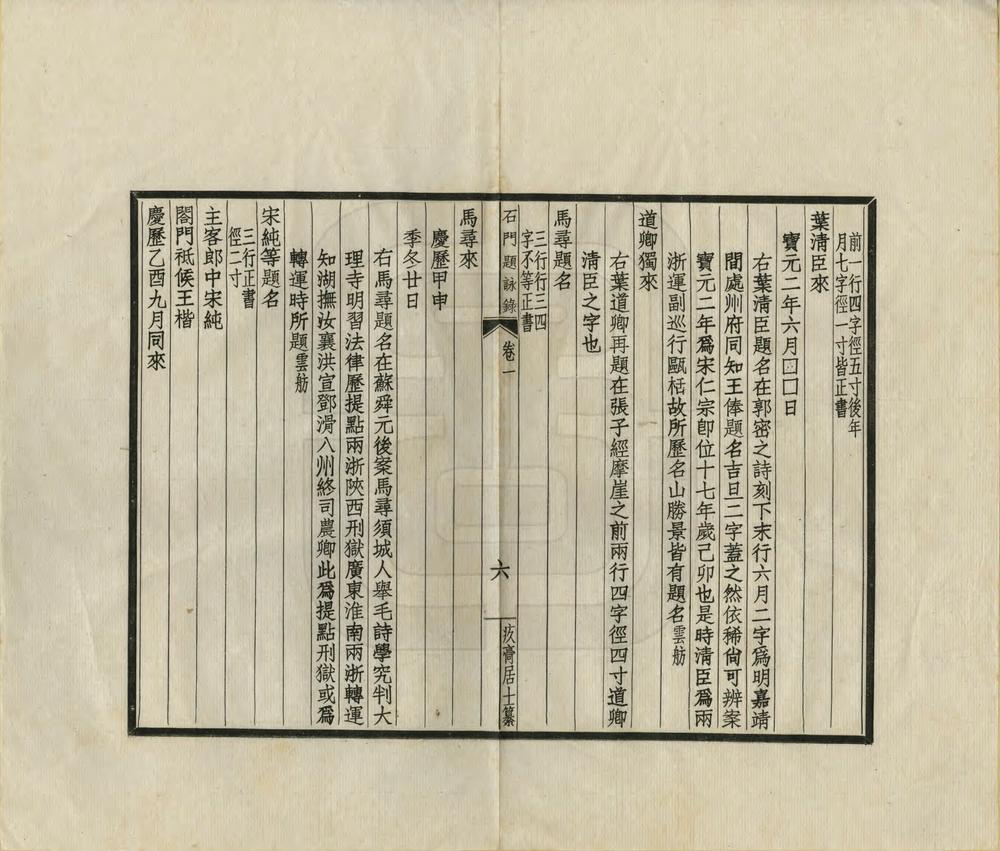 前一行四字徑五寸後年
月七字徑一寸皆正書
葉清臣來
寶元二年六月□□日
右葉清臣題名在郭密之詩刻下末行六月二字爲明嘉靖
間處州府同知王俸題名吉旦二字蓋之然依稀尙可辨案
寶元二年爲宋仁宗卽位十七年歲己卯也是時清臣爲兩
浙運副巡行甌栝故所歷名山勝景皆有題名雲舫
道卿獨來
右葉道卿再題在張子經摩崖之前兩行四字徑四寸道卿
清臣之字也
馬尋題名
三行行三四
字不等正書
石門題詠錄 卷一 六 疚膏居士纂
馬尋來
慶曆甲申
季冬廿日
右馬尋題名在蘇舜元後案馬尋須城人舉毛詩學究判大
理寺明習法律歷提點兩浙陝西刑獄廣東淮南兩浙轉運
知湖撫汝襄洪宣鄧滑八州終司農卿此爲提點刑獄或爲
轉運時所題雲舫
宋純等題名
三行正書
徑二寸
主客郎中宋純
閤門祗候王楷
慶歷乙酉九月同來